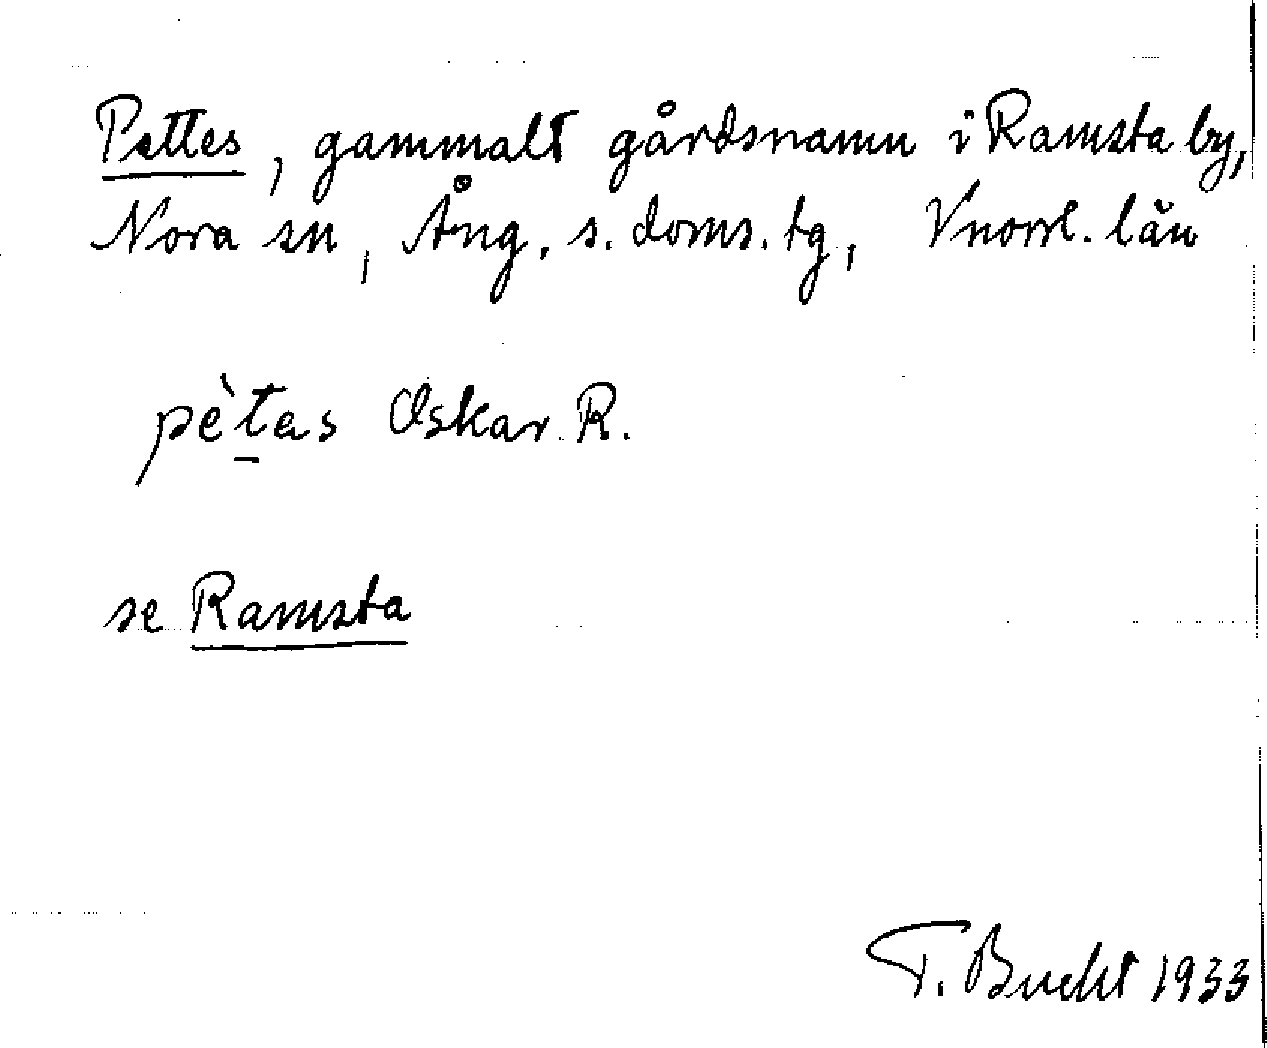 Pettes, gammalt gårdsnamn i Ramsta by,
Nora sn, Ång. s. doms. tg, Vnorrl. län
pèt̲as Oskar R.
se Ramsta
T. Bucht 1933